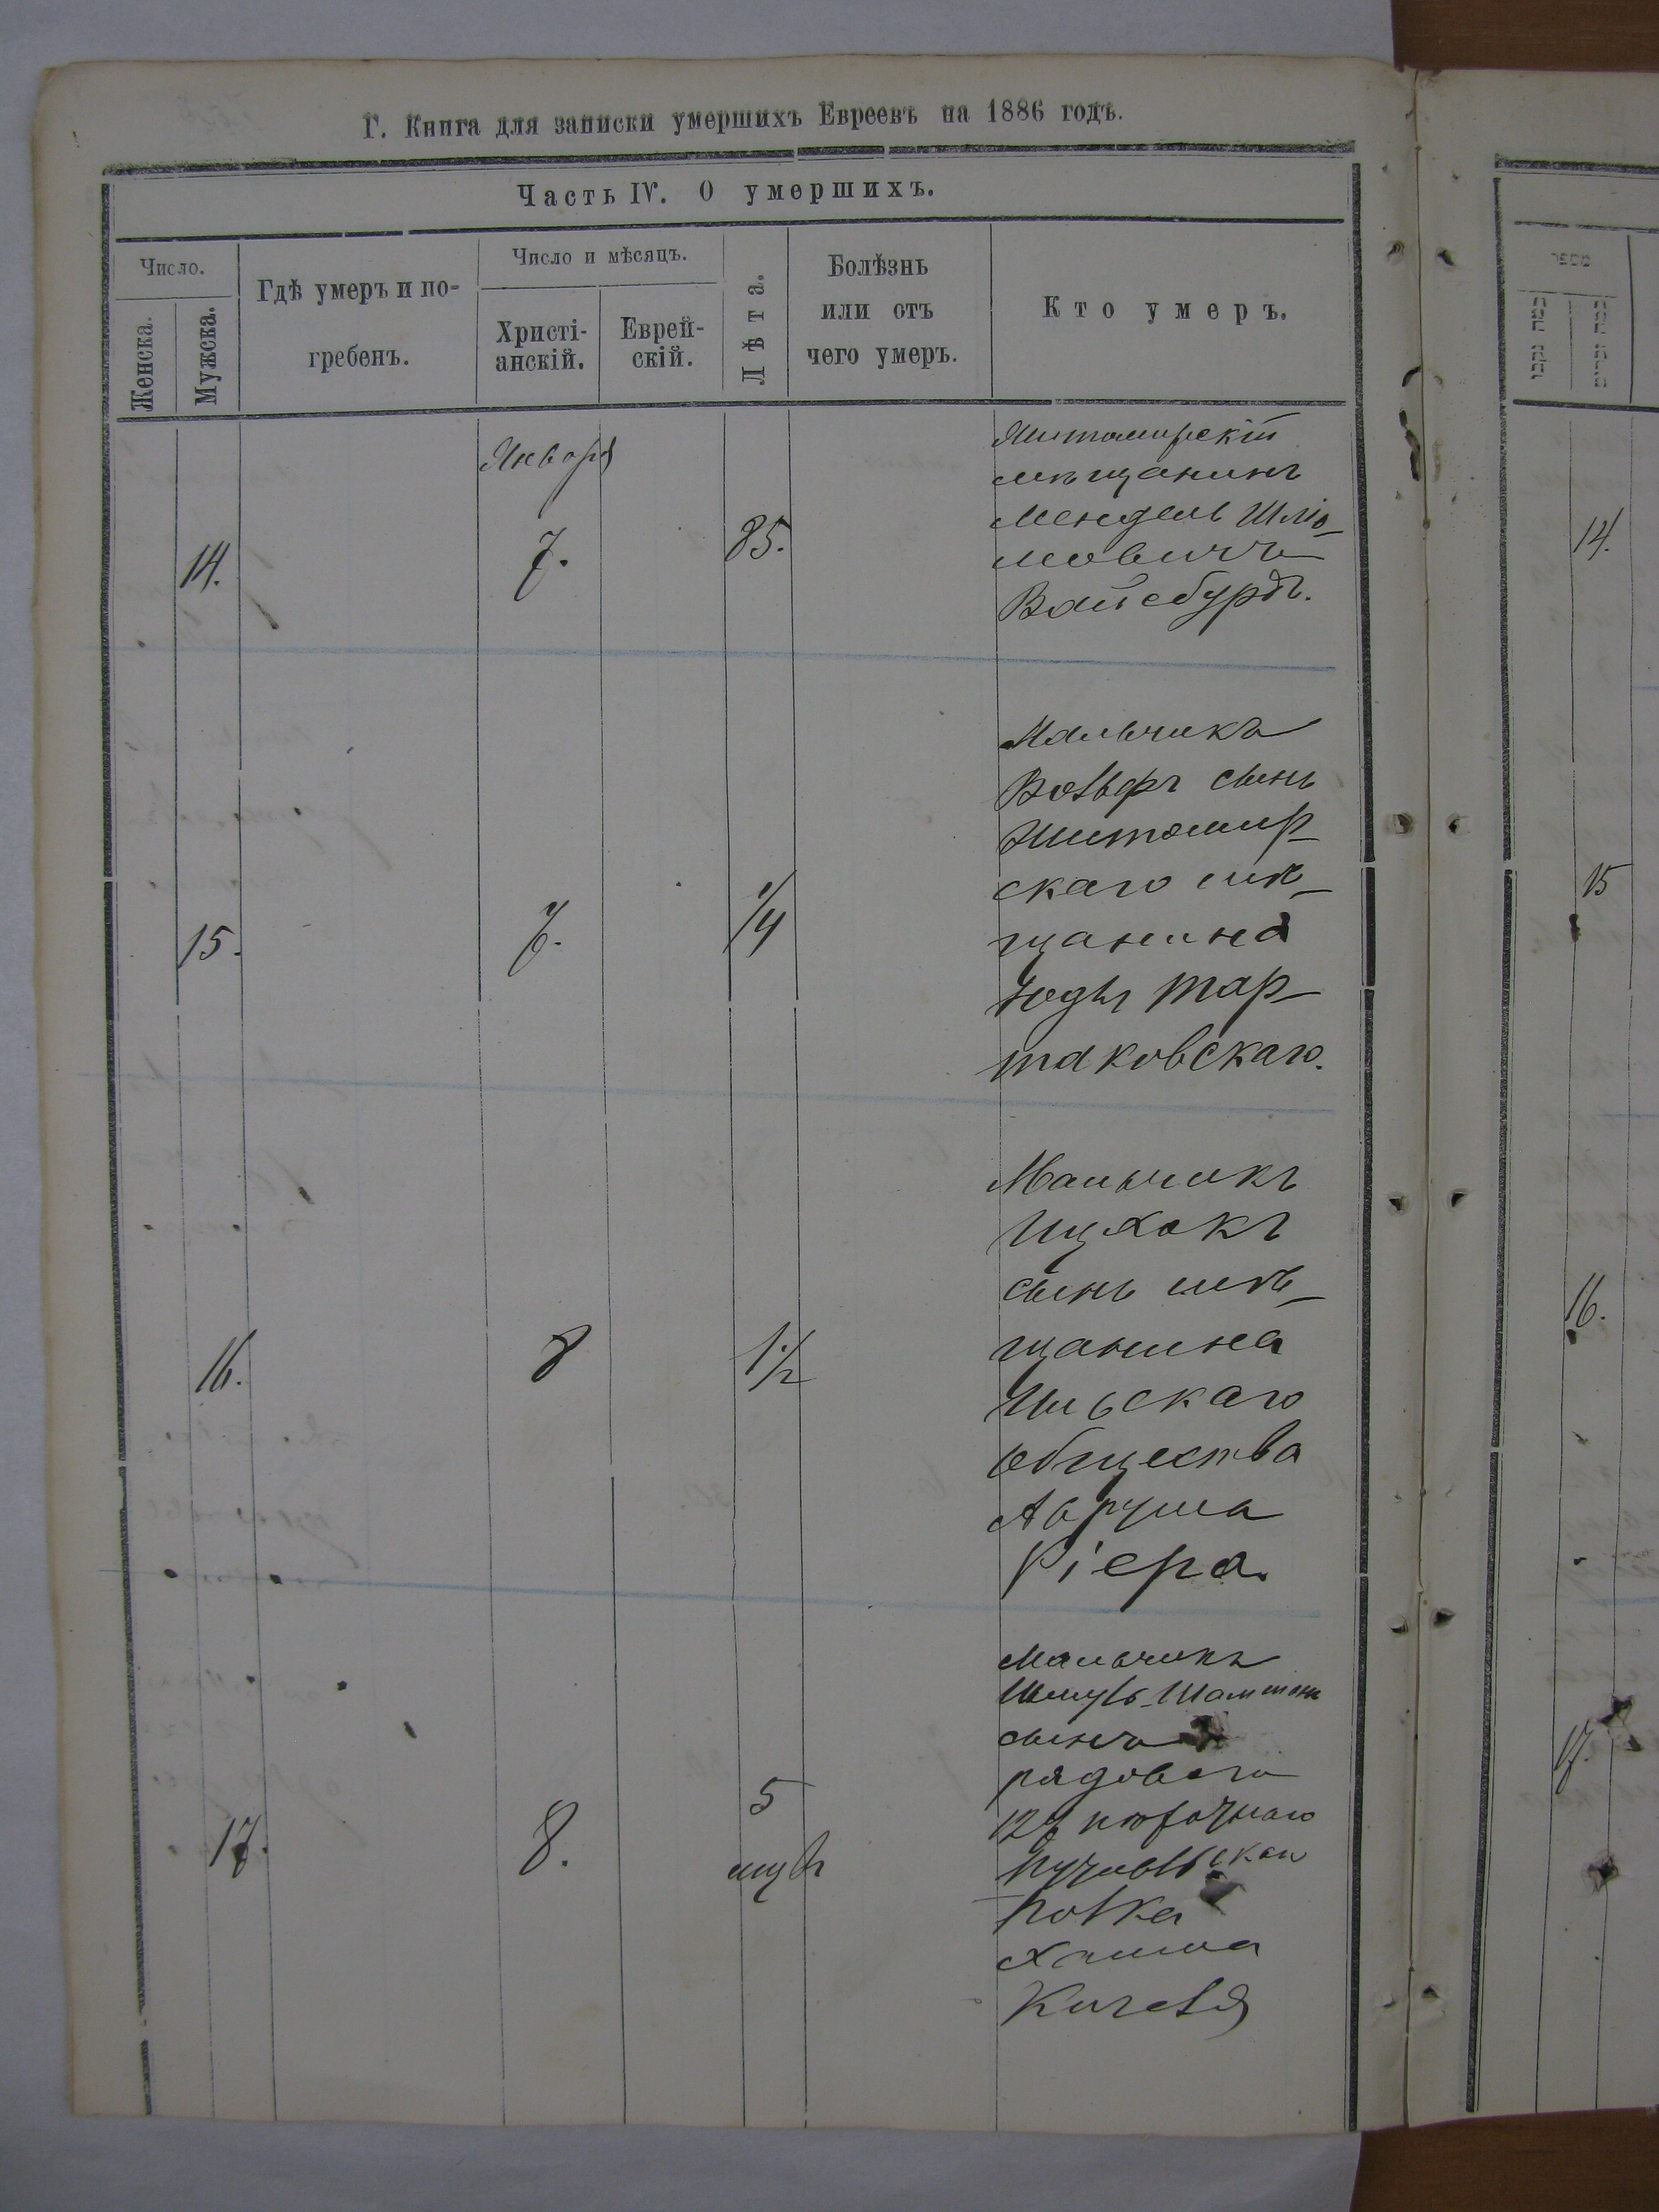 Г. Книга для записки умершихъ Евреевъ на 1886 годъ.
Часть IV. О умершихъ.
Число.
Женска.
Мужска.
Гдѣ умеръ и по-
гребенъ.
Число и мѣсяцъ.
Христі-
анскій.
Еврей-
скій.
Лѣта.
Болѣзнь
или отъ
чего умеръ.
Кто умеръ.
Января
14.
7.
85.
Житомирскій
мѣщанинъ
Мендель Шліо-
мовичъ
Вайсбурдъ.
15.
7.
1/4
Мальчикъ
Вольфъ сынъ
Житомир-
скаго мѣ-
щанина
Юды Тар-
таковскаго.
16.
8
1 1/2
Мальчикъ
Ицхокъ
сынъ мѣ-
щанина
Ильскаго
общества
Аврума
17.
8.
5
Мальчикъ
Шмуль
сынъ
рядоваго
127 пѣхотнаго
Путивльскаго
полка
Хаима
14.
15
16.
17.